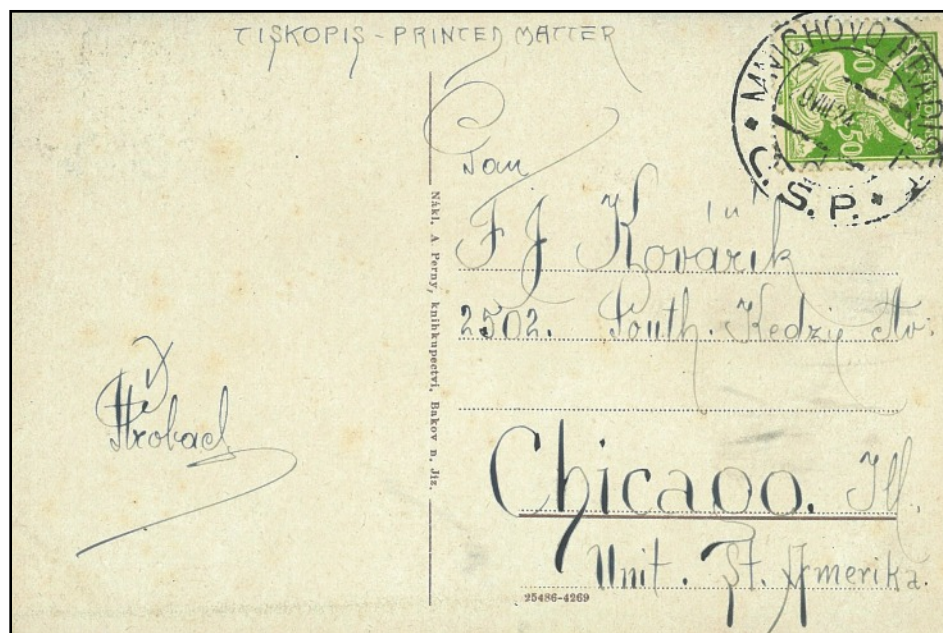 TISKOPIS - PRINTED MATTER
MNICHOVO HRADIŠTĚ
Č.S.P.
9.VIII.24
50 50
Pan
F J Kovárik
2502. South. Kedzie Av.
Chicago. Ill.
Unit. St. Amerika.
Strobach
Nákl. A Perny, knihkupectví, Bakov n. Jiz.
25486-4269